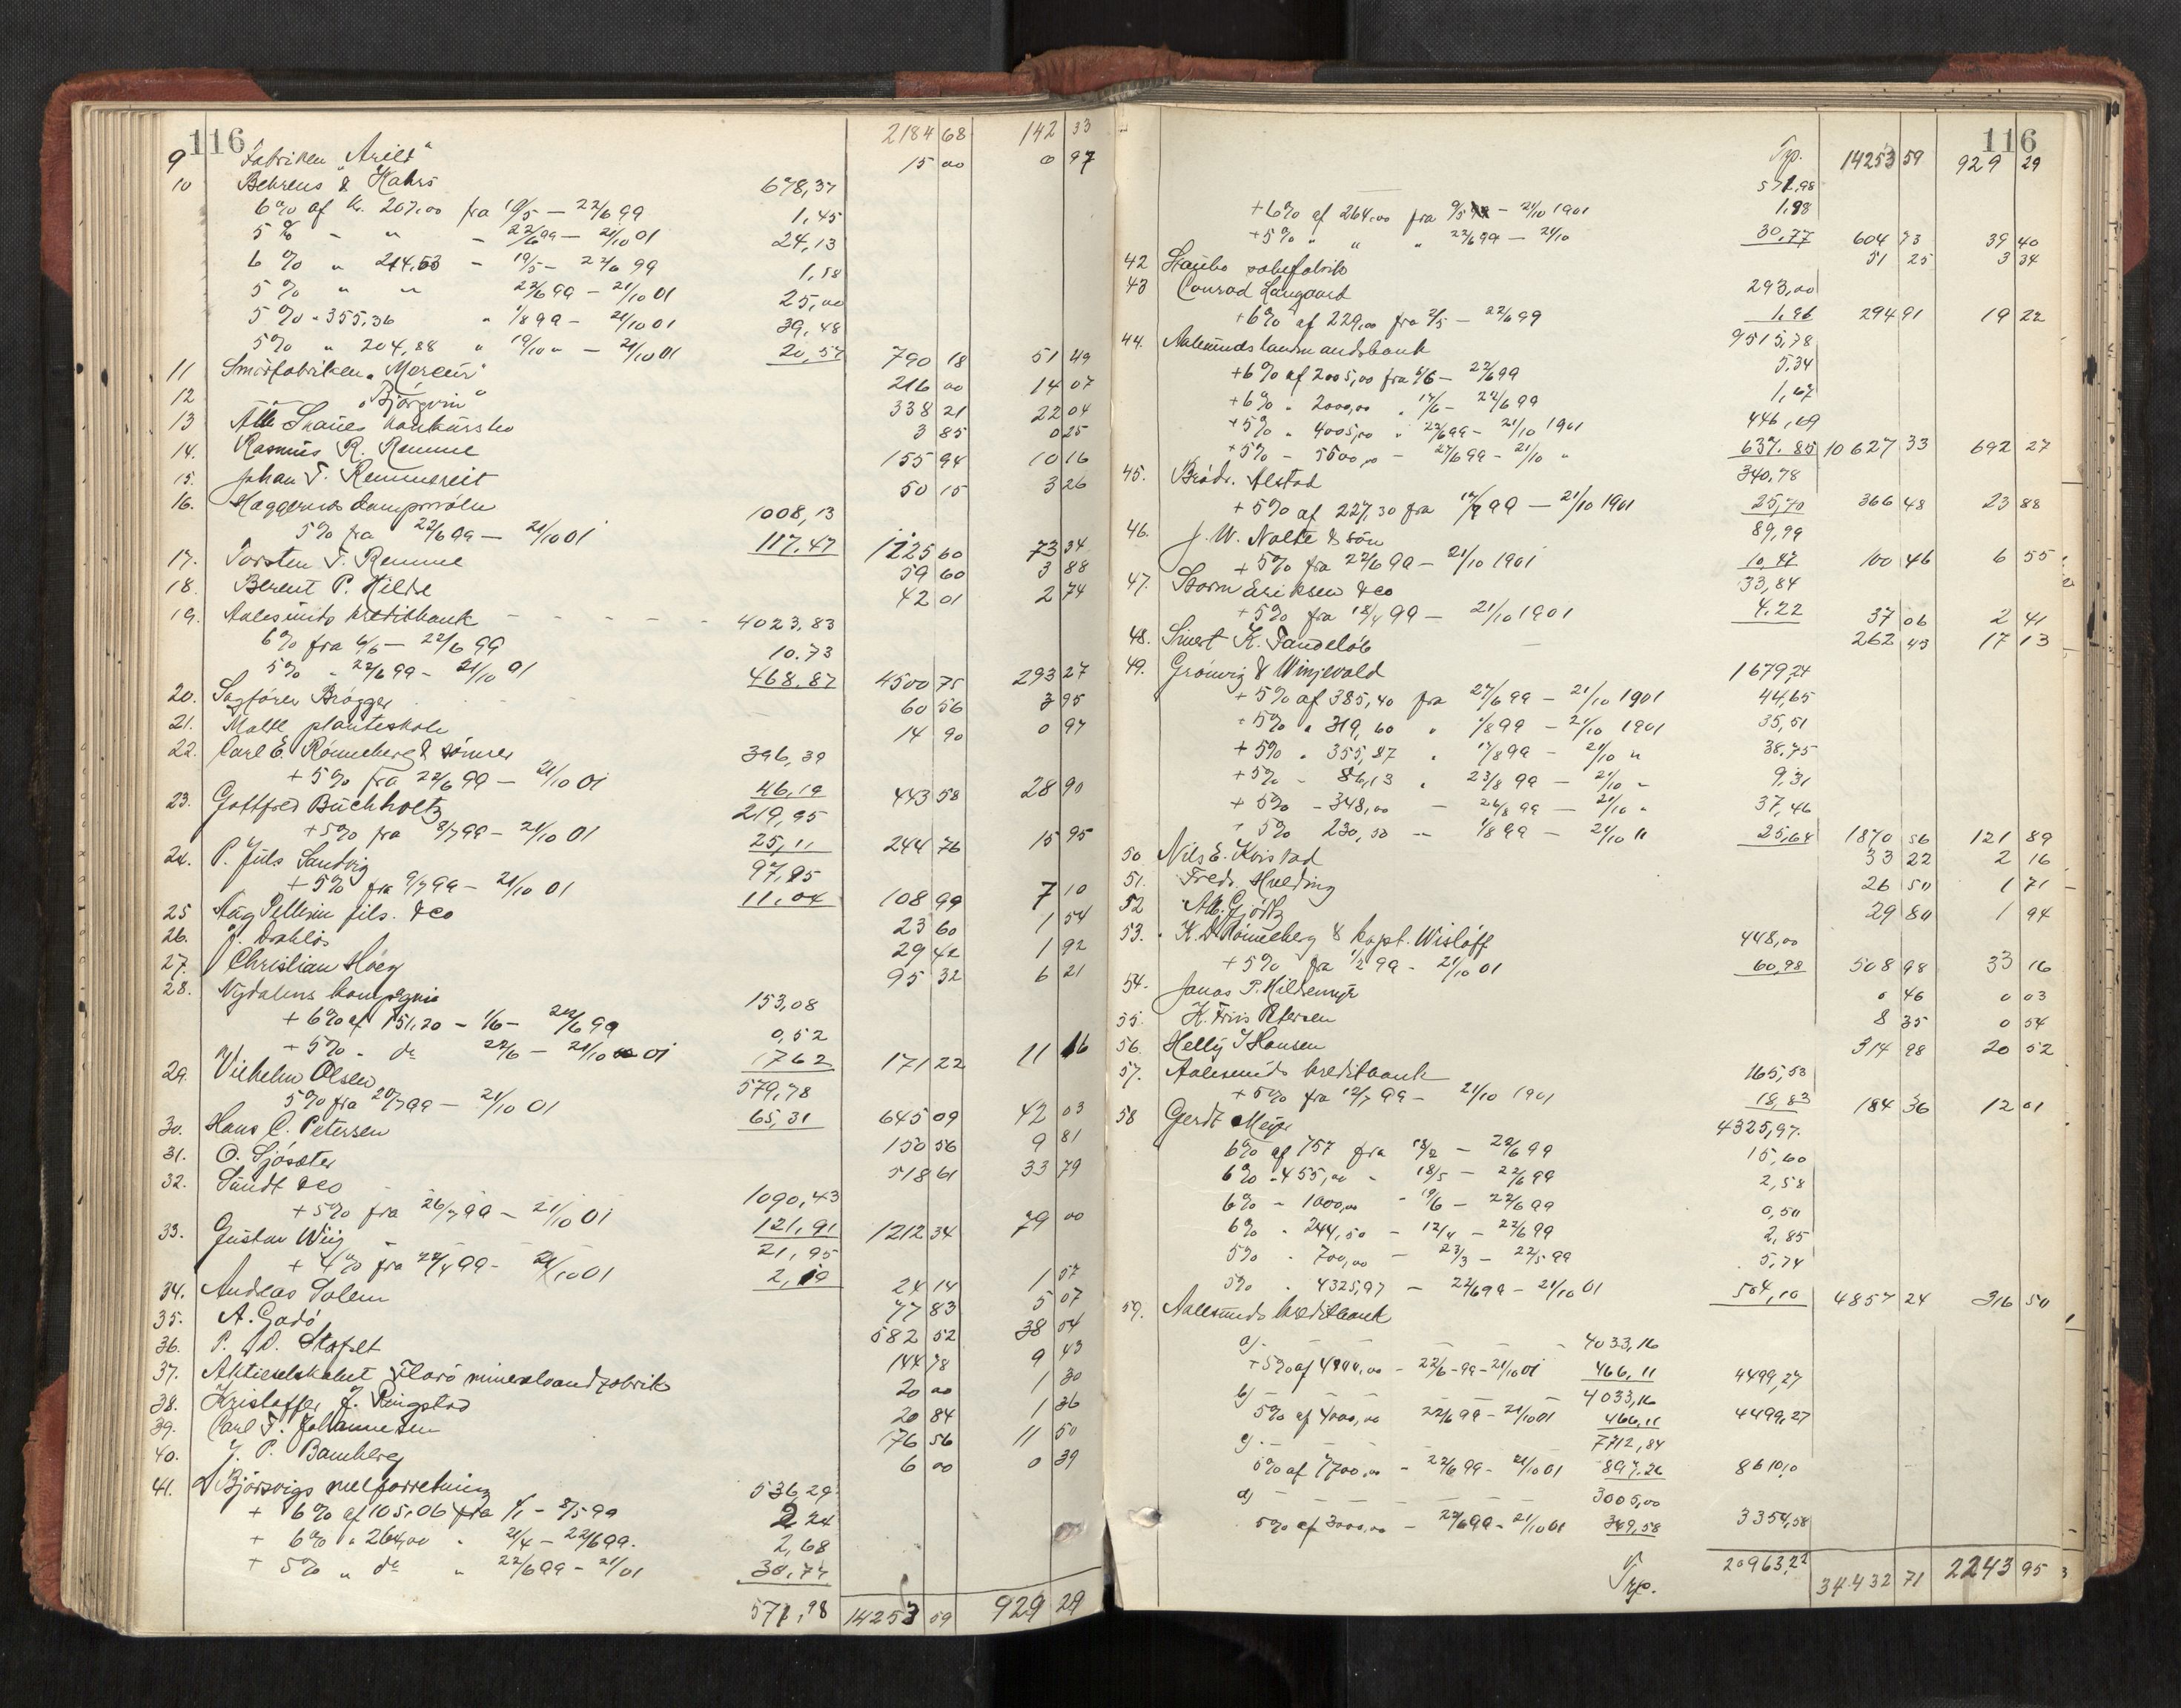 116 2184 68 142 33
9 Fabriken "Arild" 15 00 0 97
10 Behrens & Kahrs 678,37
6% af kr. 267,00 fra 19/5 — 22/6 99 1,45
5% " " - 22/6 99 — 21/10 01 24,13
6% " 214,53 - 19/5 - 22/6 99 1,58
5% " " 22/6 99 - 21/10 01 25,00
5% " 355,36 " 1/8 99 - 21/10 01 39,48
5% " 204,88 " 19/10 " - 21/10 01 20,57 790 18 51 49
11 Smörfabriken "Mercur" 216 00 14 07
12 " "Björgvin" 338 21 22 04
13 Skaues konkursbo 3 85 0 25
14. Rasmus R. Remme 155 94 10 16
15. Johan T. Remmereit 50 15 3 26
16. dampmölle 1008,13
5% fra 22/6 99 — 21/10 01 117.47 1125 60 73 34
17. Torsten T. Remme 59 60 3 88
18. Berent P. Hilde 42 01 2 74
19. Aalesunds kreditbank - - - - - 4023,83
6% fra 6/6 — 22/6 99 10.73
5% " 22/6 99 - 21/10 01 468,87 4500 75 293 27
20. Sagförer Brögger 60 56 3 95
21. Molde planteskole 14 90 0 97
22. Carl E. Rönneberg & sönner 396,39
+ 5% fra 22/6 99 — 21/10 01 46,19 443 58 28 90
23. Gottfred Buchholtz 219,95
+5% fra 8/7 99 - 21/10 01 25,11 244 76 15 95
24. P. Juls Sandvig 97,95
+5% fra 9/7 99 - 21/10 01 11.04 108 99 7 10
25 Aug Pellerin fils. & co 23 60 1 54
26. J. Drabløs 29 42 1 92
27. Christian Höeg 95 32 6 21
28. Nydalens kompagnie 153,08
+ 6% af 151,20 - 1/6 - 22/6 99 0,52
+ 5% - do 22/6 - 21/10 01 17 62 171 22 11 16
29. Vilhelm Olsen 579,78
5% fra 20/7 99 — 21/10 01 65,31 645 09 42 03
30. Hans C. Petersen 150 56 9 81
31. O. Sjösæter 518 61 33 79
32. Sundt & co 1090,43
+5% fra 26/7 99 - 21/10 01 121,91 1212 34 79 00
33. Gustav Wiig 21,95
+ 4% fra 22/4 99 - 21/10 01 2,19 24 14 1 57
34. Andreas Solem 77 83 5 07
35. A. Gadö 582 52 38 04
36. P. D. Stafelt 144 78 9 43
37. Aktieselskabet Florö mineralvandfabrik 20 00 1 30
38. Kristoffer J. Ringstad 20 84 1 36
39. Carl F. Johannesen 176 56 11 50
40. J. P. Bamberg 6 00 0 39
41. Björsvigs melforretning 536,29
+ 6% af 105,06 fra 1/1 - 8/5 99 2 24
+ 6% " 264,00 " 21/4 - 22/6 99. 2,68
+ 5% " do " 22/6 99 - 21/01 30.77
571,98 14253 59 929 29
116
Trp. 14253 59 929 29
571,98
+6% af 264,00 fra 9/5 - 21/10 1901 1,98
+5% " " " 22/6 99 - 21/10 30,77 604 73 39 40
42 51 25 3 34
43 Conrad Langaard 293,00
+6% af 229,00 fra 2/5 — 22/6 99 1,96 294 91 19 22
44. Aalesunds landmandsbank 9515,78
+6% af 2005,00 fra 6/6 — 22/6 99 5.34
+6% " 2000,00 " 17/6 - 22/6 99 1,67
+5% " 4005,00 " 22/6 99 - 21/10 1901 446,69
+5% - 5500,00 - 27/6 99 - 21/10 " 637.85 10627 33 692 27
45. Brödr. Alstad 340,78
+ 5% af 227,30 fra 17/7 99 — 21/10 1901 25,70 366 48 23 88
46. J. W. Nolte & sön 89,99
+ 5% fra 22/6 99 - 21/10 1901 10,47 100 46 6 55
47. Storm Eriksen & co 33,84
+5% fra 18/4 99 — 21/10 1901 4.22 37 06 2 41
48. Sivert K. Tandeløe 262 45 17 13
49. Grönvig & Wingevold 1679,24
+ 5% af 385,40 fra 27/6 99 - 21/10 1901 44,65
+5% " 319,60 " 1/8 99 - 21/10 1901 35,51
+ 5% " 355,27 " 17/8 99 - 21/10 " 38,75
+5% - 86,13 " 23/8 99 - 21/10 - 9,31
+ 5% - 348,00 — 26/8 99 — 21/10 " 37,46
+ 5% 230,50 - 1/8 99 - 21/10 11 25,64 1870 56 121 89
50 Nils E. Kvistad 33 22 2 16
51. Fredr. Hvelding 26 50 1 71
52 Alb. Gjörtz 29 80 1 94
53. K. D. Rönneberg & kapt. Wislöff 448,00
+5% fra 1/2 99 - 21/10 01 60,98 508 98 33 16
54. Jonas P. Hildremyr 0 46 0 03
55. K. Friis Petersen 8 35 0 54
56. Helly J Hansen 314 98 20 52
57. Aalesunds kreditbank 165,53
+5% fra 12/7 99 - 21/10 1901 18,83 184 36 12 01
58 Gerdt Meyer 4325,97.
6% af 757 fra 18/2 — 22/6 99 15,60
6% - 455,00 - 18/5 — 22/6 99 2,58
6% - 1000,00 - 19/6 — 22/6 99 0,50
6% " 244,50 - 12/4 - 22/6 99 2,85
5% " 700,00 — 23/3 - 22/5 99 5,74
5% " 4325,97 — 22/6 99 - 21/10 01 504,10 4857 24 316 50
59. Aalesunds kreditbank
a) - - - - 4033,16
+5% af 4000,00 - 22/6 - 99 - 21/10 01 466,11 4499,27
b) - - - 4033,16
5% af 4000,00 22/6 99 - 21/10 01 466,11 4499,27
c) - - - 7712,84
5% af 7700,00 - 22/6 99 - 21/10 01 897,26 8610,10
d) - - - 3005,00
5% af 3000,00 - 22/6 99 - 21/10 01 349,58 3354,58
Trp. 20963,22 34.432 71 2243 95